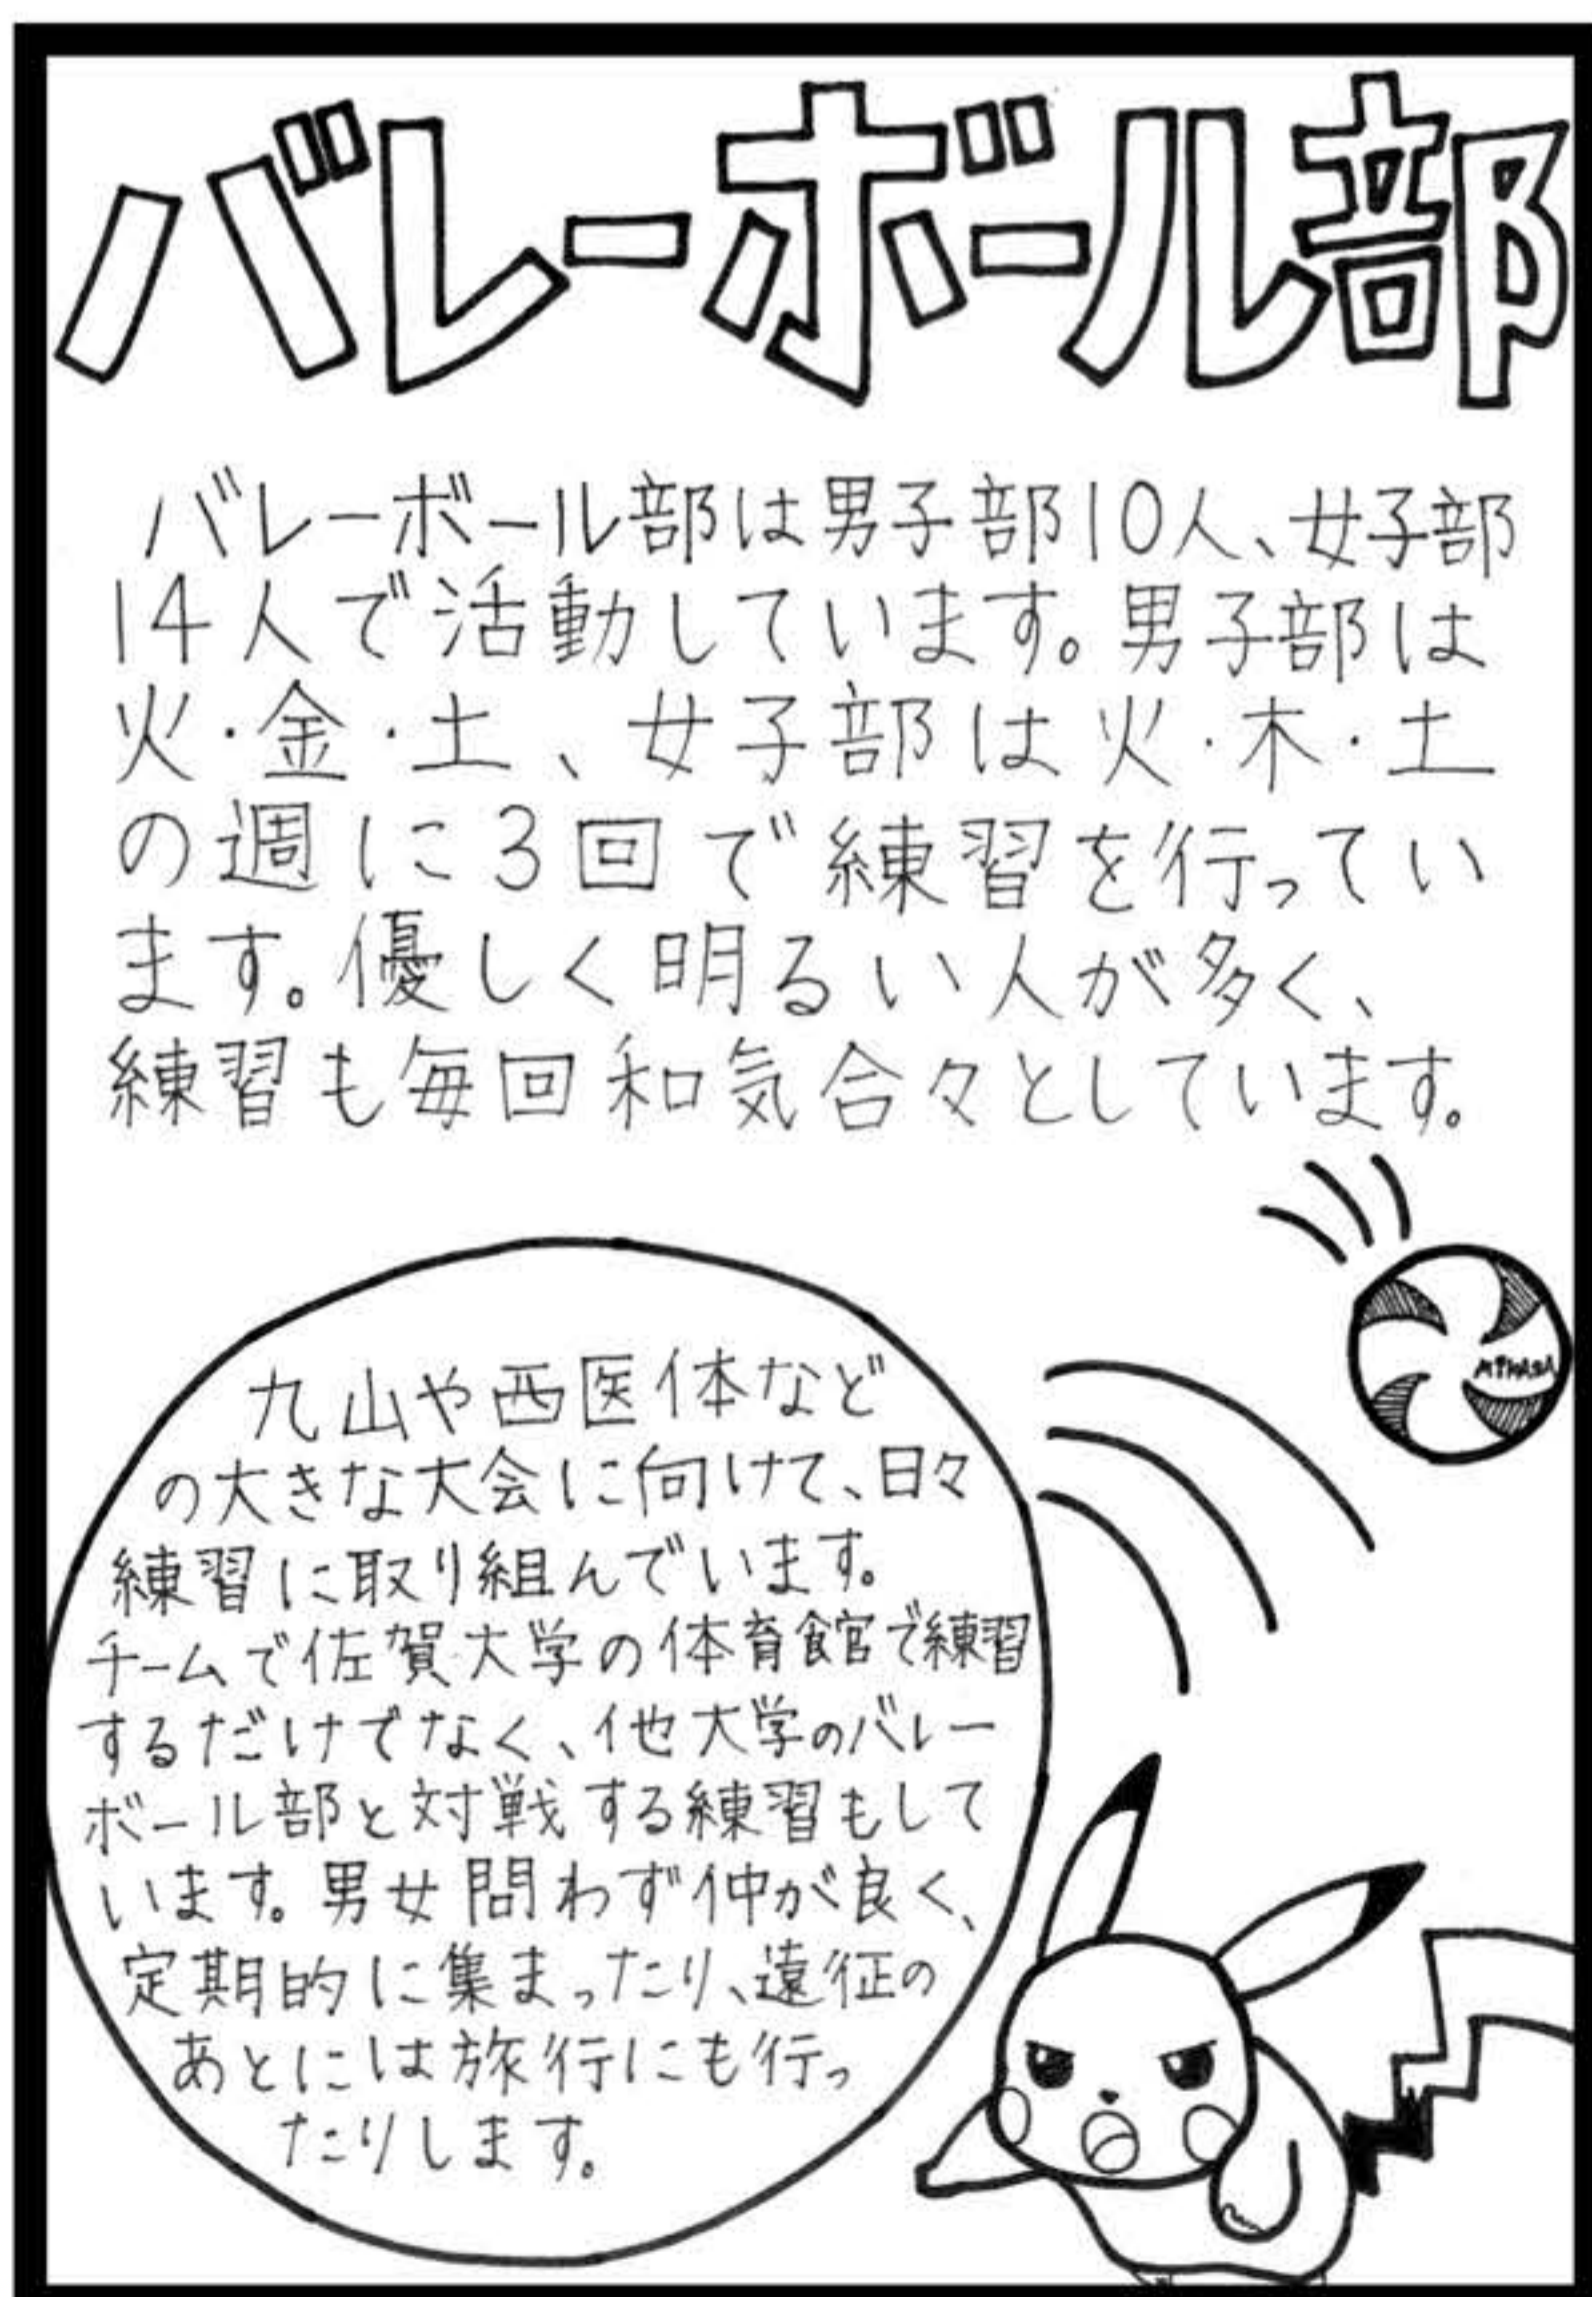 バレーボール部
バレーボール部は男子部10人、女子部
14人で活動しています。男子部は
火・金・土、女子部は火・木・土
の週に3回で練習を行ってい
ます。優しく明るい人が多く、
練習も毎回和気合々としています。
MIKASA
九山や西医体など
の大きな大会に向けて、日々
練習に取り組んでいます。
チームで佐賀大学の体育館で練習
するだけでなく、他大学のバレー
ボール部と対戦する練習もして
います。男女問わず仲が良く、
定期的に集まったり、遠征の
あとには旅行にも行っ
たりします。